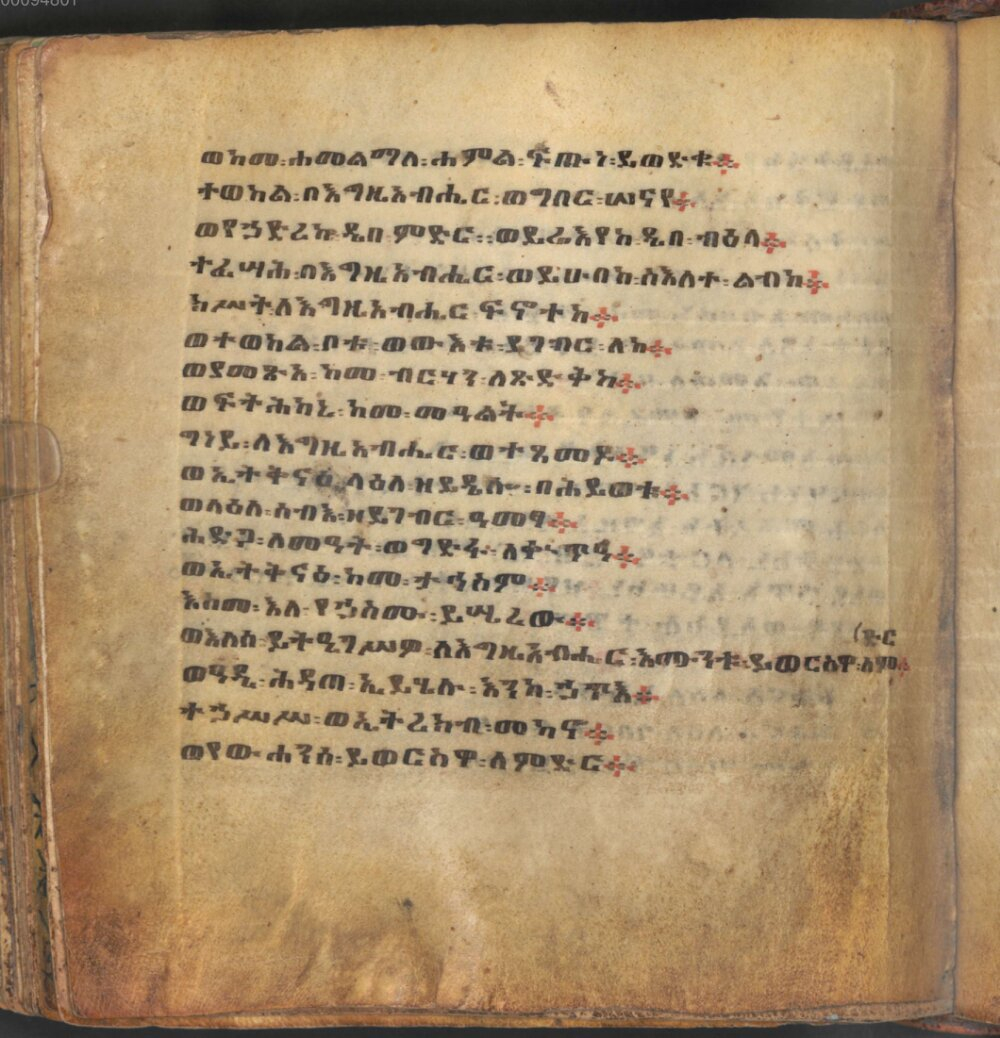 00094801
ወከመ፡ሐመልማለ፡ሐምል፡ፍጡነ፡ይወድቁ።
ተወከል፡በእግዚአብሔር፡ወግበር፡ሠናየ።
ወየኃድረከ፡ዲበ፡ምድር።ወይሬእየከ፡ዲበ፡ብዕላ።
ተፈሣሕ፡በእግዚአብሔር፡ወይሁበከ፡ስእለተ፡ልብከ።
ክሥት፡ለእግዚአብሔር፡ፍኖተከ።
ወተወከል፡ቦቱ፡ወውእቱ፡ይገብር፡ለከ።
ወያመጽእ፡ከመ፡ብርሃን፡ለጽድቅከ።
ወፍትሕከኒ፡ከመ፡መዓልት።
ግነይ፡ለእግዚአብሔር፡ወተፄመዶ።
ወኢትቅናዕ፡ላዕለ፡ዘይዴሎ፡በሕይወቱ።
ወላዕለ፡ሰብእ፡ዘይገብር፡ዓመፃ።
ሕድጋ፡ለመዓት፡ወግድፋ፡ለቍጥዓ።
ወኢትቅናዕ፡ከመ፡ታኅስም።
እስመ፡እለ፡የኃስሙ፡ይሤረው።
ወእለሰ፡ይትዔገሥዎ፡ለእግዚአብሔር፡እሙንቱ፡ይወርስዋ፡ለም(ድር።
ወዓዲ፡ሕዳጠ፡ኢይሄሉ፡እንከ፡ኃጥእ።
ተኃሥሥ፡ወኢትረክብ፡መካኖ።
ወየውሐንሰ፡ይወርስዋ፡ለምድር።